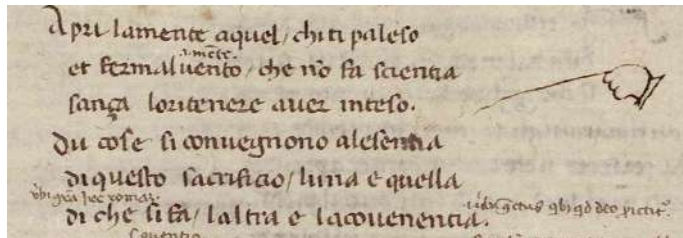 Apri lamente aquel / chi ti paleso
et fermaluento / che nō fa scientia
sança loritenere auer inteso.
Du cose si conuegnono alesentia
di questo sacrificio / luna e quella
di che si fa / laltra e lacouenentia.